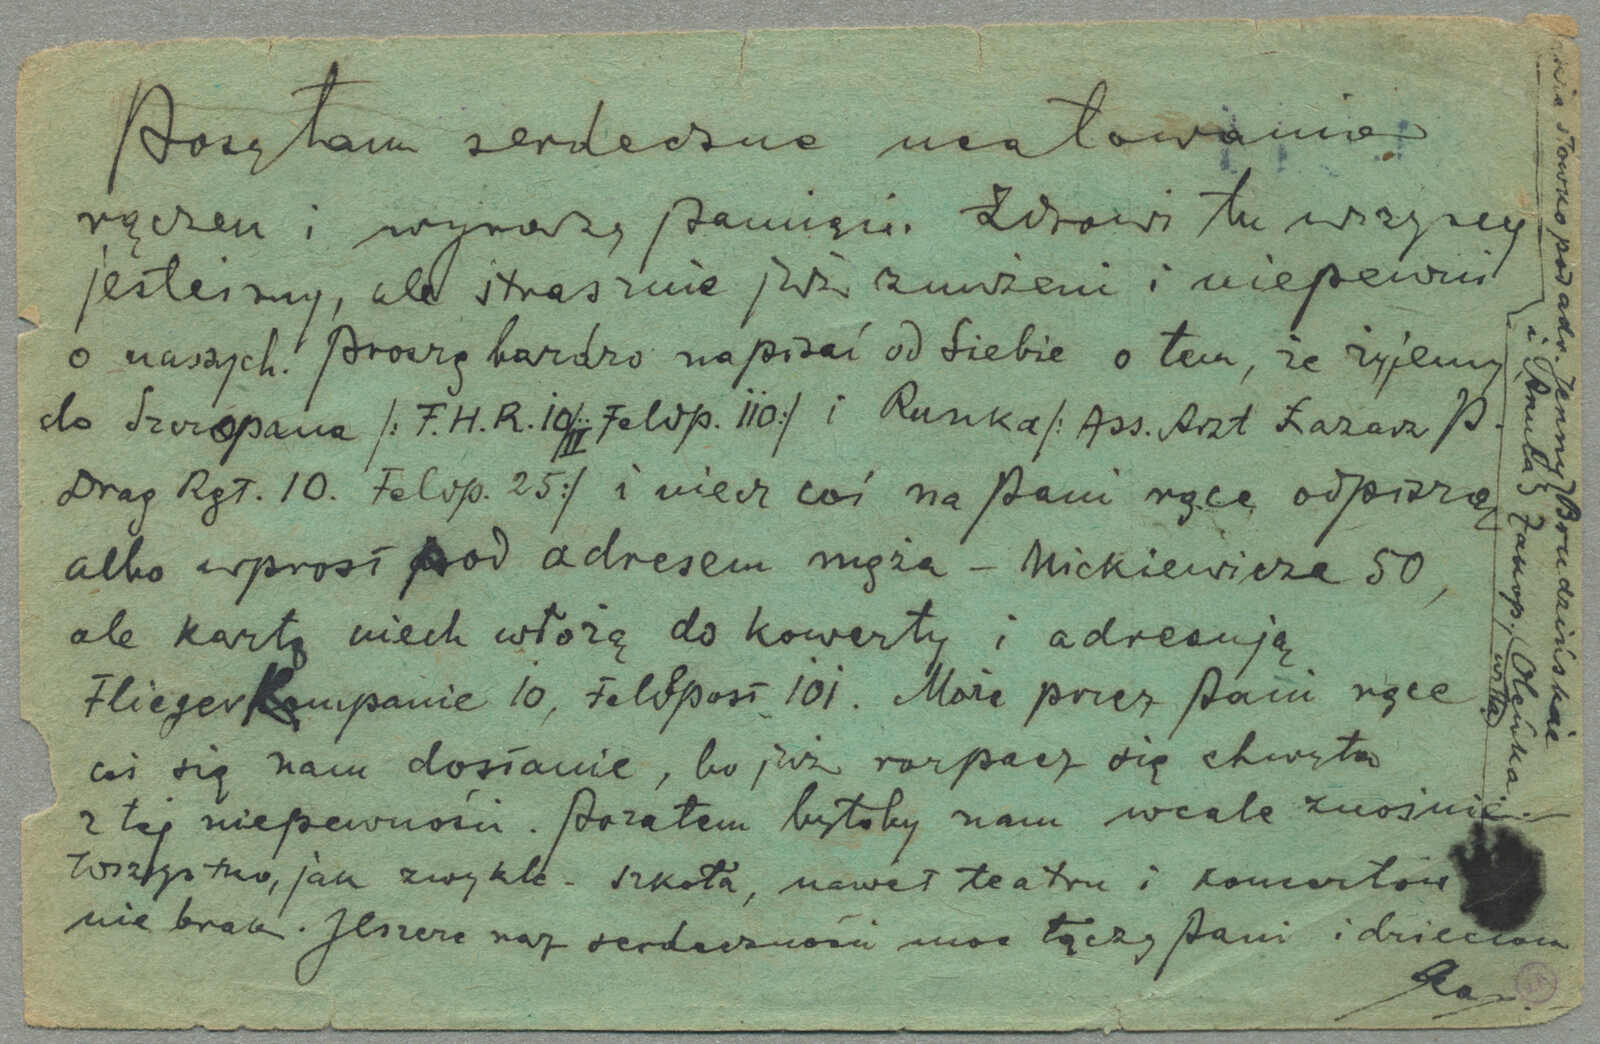 Posyłam serdeczne ucałowania
rączek i wyrazy pamięci. Zdrowi tu wszyscy
jesteśmy, ale strasznie już znużeni i niepewni
o naszych. Proszę bardzo napisać od siebie o tem, że żyjemy
do Szczepana /: F.H.R. 10/III Feldp. 110:/ i Runka /: Ass. Arzt Łazarz P.
Drag Rgt. 10. Feldp. 25:/ i niech coś na Pani ręce odpiszą
albo wprost pod adresem męża – Mickiewicza 50,
ale kartę niech włożą do kowerty i adresują
FliegerKompanie 10, Feldpost 101. Może przez Pani ręce
coś się nam dostanie, bo już rozpacz się chwyta
z tej niepewności. Pozatem byłoby nam wcale znośnie.
Wszystko, jak zwykle – szkoła, nawet teatru i koncertów
nie brak. Jeszcze raz serdeczności moc łączę Pani i dzieciom
słówko pod adr. Jenny Brudzińskiej
i Anula 3 Zakop., Oleńka